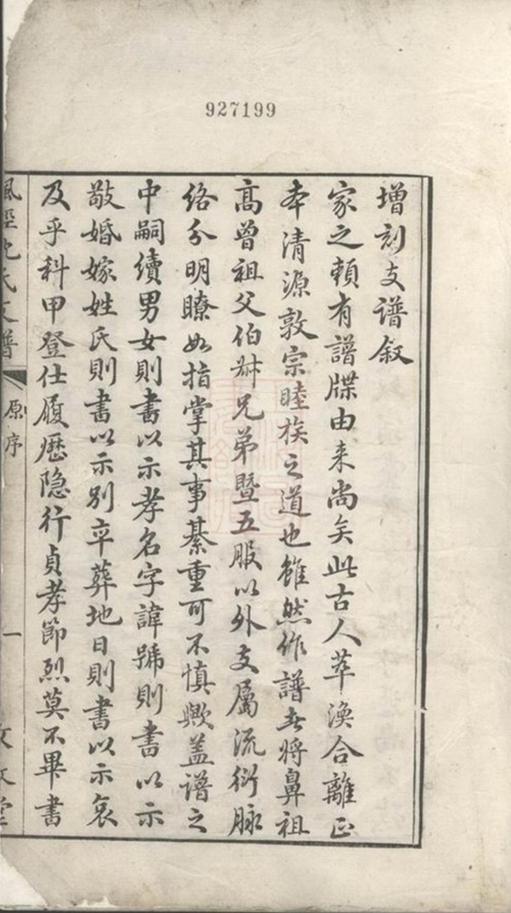 927199
增刻支譜叙
家之賴有譜牒由来尚矣此古人萃渙合離正
本清源敦宗睦族之道也雖然作譜者将鼻祖
髙曾祖父伯叔兄弟暨五服以外支属流衍脉
絡分明瞭如指掌其事綦重可不慎歟盖譜之
中嗣續男女則書以示孝名字諱號則書以示
敬婚嫁姓氏則書以示别卒葬地日則書以示哀
及乎科甲登仕履歷隐行貞孝節烈莫不畢書
楓涇沈氏支譜
原序
一